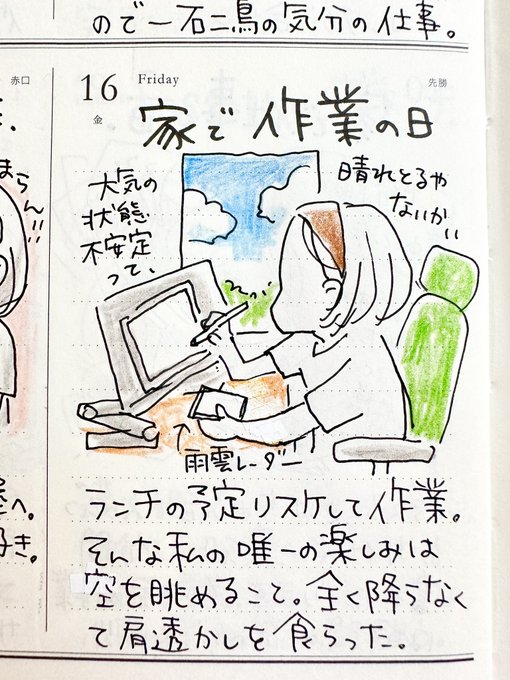 ので一石二鳥の気分の仕事。
赤口
16
Friday
先勝
金
家で作業の日
大気の
状態
不安定
って、
晴れとるや
ないかい
まらん!!
雨雲レーダー
ランチの予定リスケして作業。
そんな私の唯一の楽しみは
空を眺めること。全く降らなく
て肩透かしを食らった。
へ。
き。